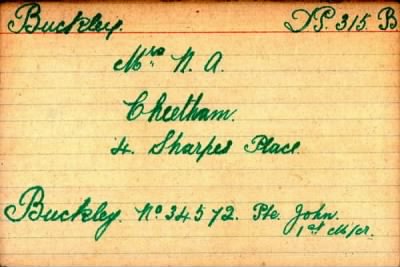 Buckley. DP. 315. B.
Mrs N. A.
Cheetham.
4. Sharpes Place
Buckley. No 34572. Pte. John.
1st M/cr.